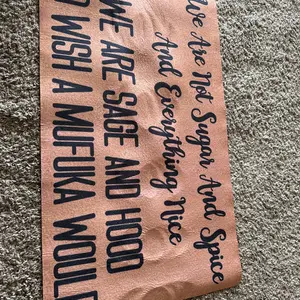 We Are Not Sugar And Spice
And Everything Nice
WE ARE SAGE AND HOOD
D WSH A MUFUKA WOULD